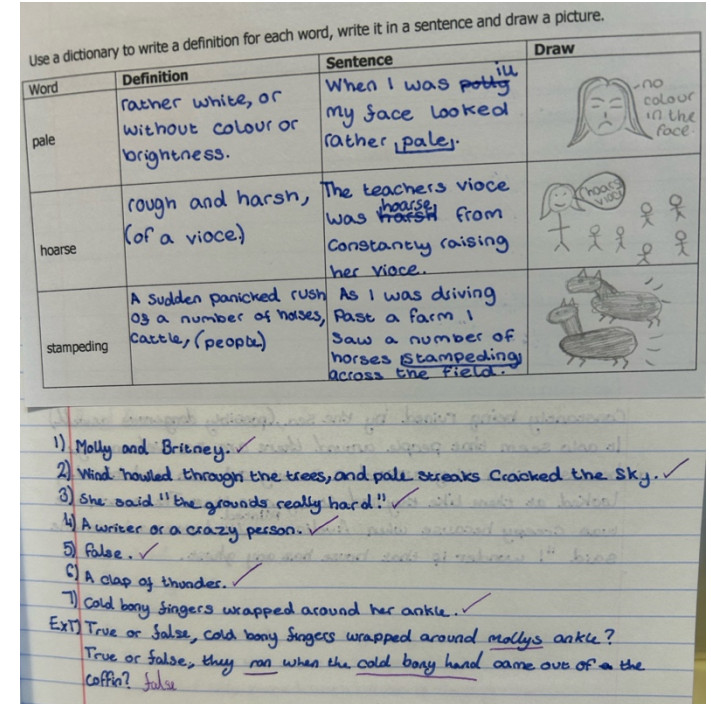 Use a dictionary to write a definition for each word, write it in a sentence and draw a picture.
Word
Definition
Sentence
Draw
pale
rather white, or
without colour or
brightness.
When I was potty ill
my face looked
rather pale.
no
colour
in the
face.
hoarse
rough and harsh,
(of a vioce)
The teachers vioce
was harsh hoarse from
Constantly raising
her vioce.
hoarse
vioce
stampeding
A sudden panicked rush
of a number of horses,
cattle, (people)
As I was driving
Past a farm I
saw a number of
horses stampeding
across the field.
1) Molly and Britney.
2) Wind howled through the trees, and pale streaks cracked the sky.
3) She said "the grounds really hard"
4) A writer or a crazy person.
5) False.
6) A clap of thunder.
7) Cold bony fingers wrapped around her ankle.
EXT) True or false, cold bony fingers wrapped around mollys ankle?
True or false, they ran when the cold bony hand came out of the
coffin? false